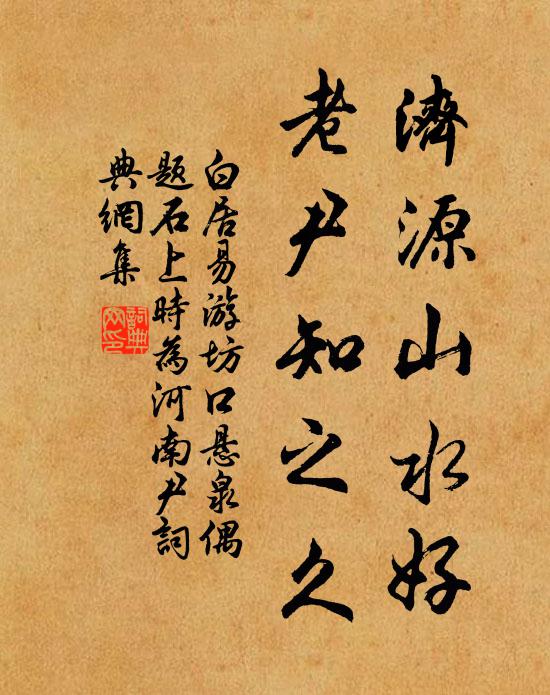 濟源山水好
老尹知之久
白居易游坊口悬泉偶
题石上時為河南尹詞
典網集
詞典網印